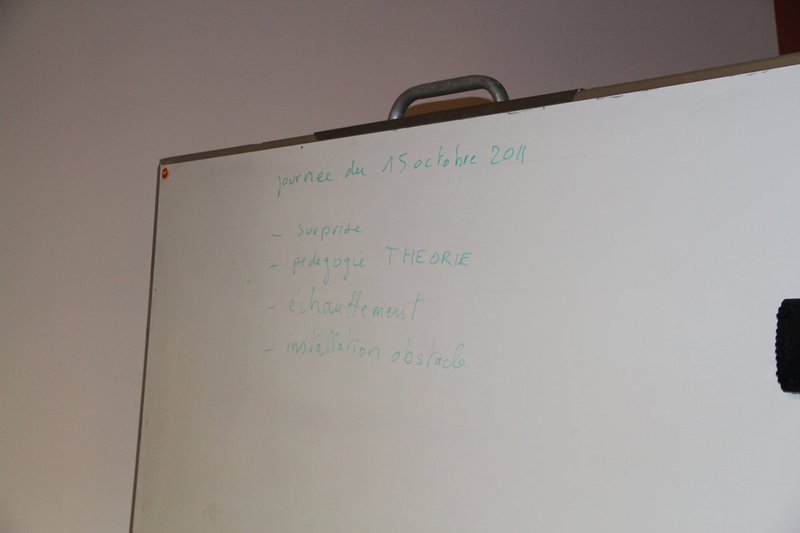 journee du 15 octobre 2011
- surprise
- pédagogie THEORIE
- échauffement
- installation obstacle